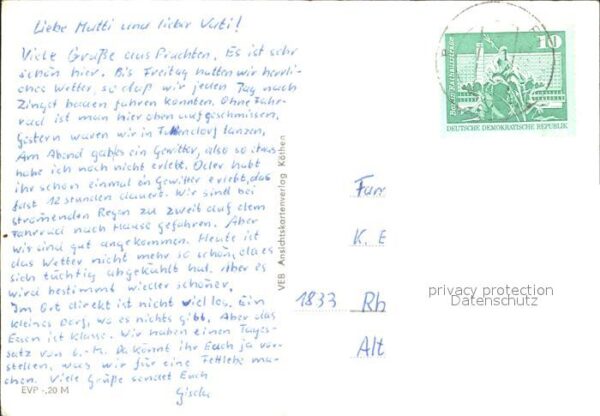 Liebe Mutti und lieber Vati!
Viele Grüße aus Pruchten. Es ist sehr
schön hier. Bis Freitag hatten wir herrli-
ches Wetter, so daß wir jeden Tag nach
Zingst baden fahren konnten. Ohne Fahr-
rad ist man hier oben aufgeschmissen.
Gestern waren wir in Fuhlendorf tanzen,
Am Abend gab es ein Gewitter, also so etwas
habe ich noch nicht erlebt. Oder habt
ihr schon einmal ein Gewitter erlebt, das
fast 12 Stunden dauert. Wir sind bei
strömenden Regen zu zweit auf dem
Fahrrad nach Hause gefahren. Aber
wir sind gut angekommen. Heute ist
das Wetter nicht mehr so schön, da es
sich tüchtig abgekühlt hat. Aber es
wird bestimmt wieder schöner.
Im Ort direkt ist nicht viel los. Ein
kleines Dorf, wo es nichts gibt. Aber das
Essen ist Klasse. Wir haben einen Tages-
satz von 6.-M. Da könnt ihr Euch ja vor-
stellen, was wir für eine Fettlebe ma-
chen. Viele Grüße sendet Euch
Gisela
EVP -,20 M
VEB Ansichtskartenverlag Köthen
10
Berlin, Rathausstraße
DEUTSCHE DEMOKRATISCHE REPUBLIK
Fam
K. E
1833 Rh
Alt
privacy protection
Datenschutz